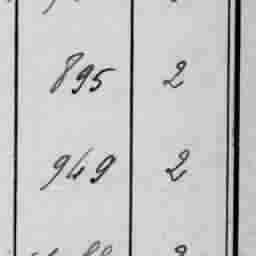 895 2
949 2